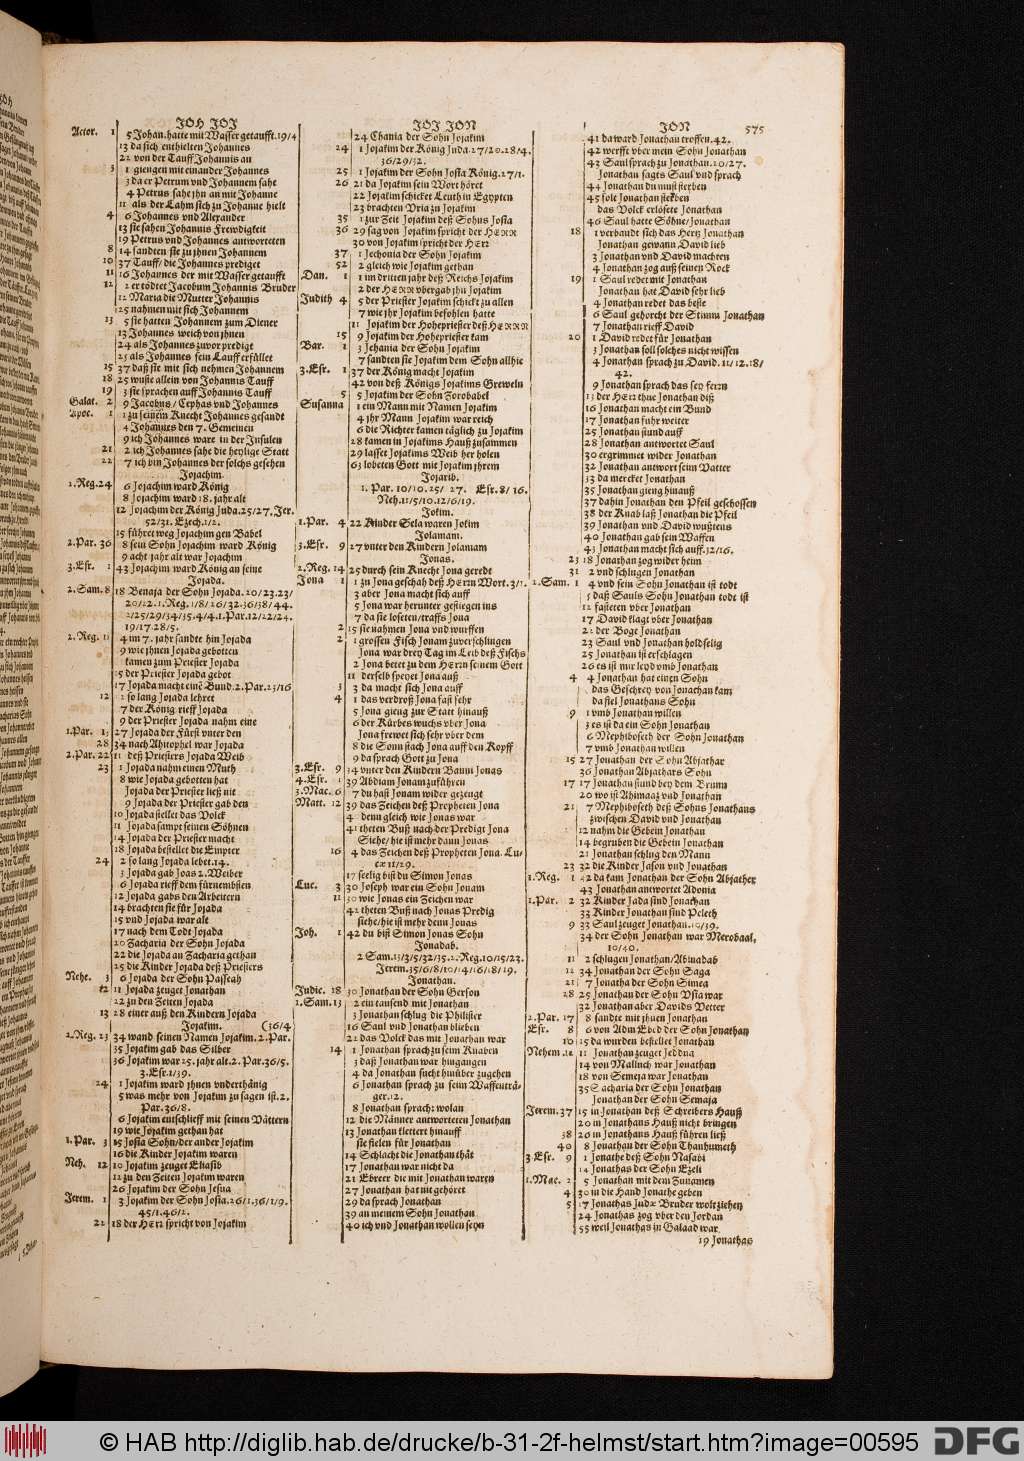 JOH JOJ
Actor. 1 5 Johan. hatte mit Wasser getaufft. 19/4
13 da sich enthielten Johannes
22 von der Tauff Johannis an
3 1 giengen mit einander Johannes
3 da er Petrum vnd Johannem sahe
4 Petrus sahe jhn an mit Johanne
11 als der Lahm sich zu Johanne hielt
4 6 Johannes vnd Alexander
13 sie sahen Johannis Frewdigkeit
19 Petrus vnd Johannes antworteten
8 14 sandten sie zu jhnen Johannem
10 37 Tauff/ die Johannes prediget
11 16 Johannes der mit Wasser getaufft
12 2 er tödtet Jacobum Johannis Bruder
12 Maria die Mutter Johannis
25 nahmen mit sich Johannem
13 5 sie hatten Johannem zum Diener
13 Johannes weich von jhnen
24 als Johannes zuvor predigt
25 als Johannes sein Lauff erfüllet
15 37 daß sie mit sich nehmen Johannem
18 25 wuste allein von Johannis Tauff
19 3 sie sprachen auff Johannis Tauff
Galat. 2 9 Jacobus/ Cephas vnd Johannes
Apoc. 1 1 zu seinem Knecht Johannes gesandt
4 Johannes den 7. Gemeinen
9 ich Johannes ware in der Insulen
21 2 ich Johannes sahe die heylige Statt
22 7 ich bin Johannes der solchs gesehen
Jojachim.
2. Reg. 24 6 Jojachim ward König
8 Jojachim ward 18. jahr alt
12 Jojachim der König Juda. 25/27. Jer.
52/31. Ezech. 1/2.
15 führet weg Jojachim gen Babel
2. Par. 36 8 sein Sohn Jojachim ward König
9 acht jahr alt war Jojachim
3. Esr. 1 43 Jojachim ward König an seine
Jojada.
2. Sam. 8 18 Benaja der Sohn Jojada. 20/23. 23/
20/22. 1. Reg. 1/8/26/32. 36/38/44.
2/25/29/34/35. 4/4. 1. Par. 12/22/24.
19/17. 28/5.
2. Reg. 11 4 im 7. jahr sandte hin Jojada
9 wie jhnen Jojada gebotten
kamen zum Priester Jojada
15 der Priester Jojada gebot
17 Jojada macht einē Bund. 2. Par. 23/16
12 2 so lang Jojada lehret
7 der König rieff Jojada
9 der Priester Jojada nahm eine
1. Par. 13 27 Jojada der Fürst vnter den
28 34 nach Ahitophel war Jojada
2. Par. 22 11 deß Priesters Jojada Weib
23 1 Jojada nahm einen Muth
8 wie Jojada gebotten hat
Jojada der Priester ließ nit
9 Jojada der Priester gab den
10 Jojada stellet das Volck
11 Jojada sampt seinen Söhnen
14 Jojada der Priester macht
18 Jojada bestellet die Empter
24 2 so lang Jojada lebet. 14.
3 Jojada gab Joas 2. Weiber
6 Jojada rieff dem fürnembsten
12 Jojada gabs den Arbeitern
14 brachten sie für Jojada
15 vnd Jojada war alt
17 nach dem Todt Jojada
20 Zacharia der Sohn Jojada
22 die Jojada an Zacharia gethan
25 die Kinder Jojada deß Priesters
Nehe. 3 6 Jojada der Sohn Passeah
12 11 Jojada zeuget Jonathan
22 zu den Zeiten Jojada
13 28 einer auß den Kindern Jojada
Jojakim. (36/4
2. Reg. 23 34 wand seinen Namen Jojakim. 2. Par.
35 Jojakim gab das Silber
36 Jojakim war 25. jahr alt. 2. Par. 36/5.
3. Esr. 1/39.
24 1 Jojakim ward jhnen vnderthänig
5 was mehr von Jojakim zu sagen ist. 2.
Par. 36/8.
6 Jojakim entschlieff mit seinen Vättern
19 wie Jojakim gethan hat
1. Par. 3 15 Josia Sohn/ der ander Jojakim
16 die Kinder Jojakim waren
Neh. 12 10 Jojakim zeuget Eliasib
12 zu den Zeiten Jojakim waren
26 Jojakim der Sohn Jesua
Jerem. 1 3 Jojakim der Sohn Josia. 26/1. 36/1/9.
45/1. 46/2.
22 18 der HErr spricht von Jojakim
JOJ JON
24 Chania der Sohn Jojakim
24 1 Jojakim der König Juda. 27/20. 28/4.
36/29/32.
25 1 Jojakim der Sohn Josia König. 27/1.
26 21 da Jojakim sein Wort höret
22 Jojakim schicket Leuth in Egypten
23 brachten Vria zu Jojakim
35 1 zur Zeit Jojakim deß Sohns Josia
36 29 sag von Jojakim spricht der HERR
30 von Jojakim spricht der HErr
37 1 Jechonia der Sohn Jojakim
52 2 gleich wie Jojakim gethan
Dan. 1 1 im dritten jahr deß Reichs Jojakim
2 der HERR vbergab jhn Jojakim
Judith 4 5 der Priester Jojakim schickt zu allen
7 wie jhr Jojakim befohlen hatte
11 Jojakim der Hohepriester deß HERRN
15 9 Jojakim der Hohepriester kam
Bar. 1 3 Jehania der Sohn Jojakim
7 sandten sie Jojakim dem Sohn allhie
3. Esr. 1 37 der König macht Jojakim
42 von deß Königs Jojakims Greweln
5 5 Jojakim der Sohn Zorobabel
Susanna 1 ein Mann mit Namen Jojakim
4 jhr Mann Jojakim war reich
6 die Richter kamen täglich zu Jojakim
28 kamen in Jojakims Hauß zusammen
29 lasset Jojakims Weib her holen
63 lobeten Gott mit Jojakim jhrem
Jojarib.
1. Par. 10/10. 25/ 27. Esr. 8/ 16.
Neh. 11/5/10. 12/6/19.
Jokim.
1. Par. 4 22 Kinder Sela waren Jokim
Jolamani.
3. Esr. 9 27 vnter den Kindern Jolamam
Jonas.
2. Reg. 14 25 durch sein Knecht Jona geredt
Jona 1 1 zu Jona geschah deß HErrn Wort. 3/1.
3 aber Jona macht sich auff
5 Jona war herunter gestiegen ins
7 da sie loseten/ traffs Jona
2 15 sie nahmen Jona vnd wurffen
2 1 grossen Fisch Jonam zuverschlingen
Jona war drey Tag im Leib deß Fischs
2 Jona betet zu dem HErrn seinem Gott
11 derselb speyet Jona auß
3 3 da macht sich Jona auff
4 1 das verdroß Jona fast sehr
5 Jona gieng zur Statt hinauß
6 der Kürbes wuchs vber Jona
Jona frewet sich sehr vber dem
8 die Sonn stach Jona auff den Kopff
9 da sprach Gott zu Jona
3. Esr. 9 34 vnter den Kindern Banni Jonas
4. Esr. 1 39 Abdiam Jonam zuführen
3. Mac. 6 7 du hast Jonam wider gezeugt
Matt. 12 39 das Zeichen deß Propheten Jona
4 denn gleich wie Jonas war
41 theten Buß nach der Predigt Jona
Siehe/ hie ist mehr dann Jonas
16 4 das Zeichen deß Propheten Jona. Lu-
cæ 11/29.
17 seelig bist du Simon Jonas
Luc. 3 30 Joseph war ein Sohn Jonam
11 30 wie Jonas ein Zeichen war
42 theten Buß nach Jonas Predig
siehe/ hie ist mehr denn Jonas
Joh. 1 42 du bist Simon Jonas Sohn
Jonadab.
2 Sam. 13/3/5/32/35. 2. Reg. 10/15/23.
Jerem. 35/6/8/10/14/16/18/19.
Jonathan.
Judic. 18 30 Jonathan der Sohn Gerson
1. Sam. 13 2 ein tausend mit Jonathan
3 Jonathan schlug die Philister
16 Saul vnd Jonathan blieben
21 das Volck das mit Jonathan war
14 1 Jonathan sprach zu seim Knaben
3 daß Jonathan war hingangen
4 da Jonathan sucht hinüber zugehen
6 Jonathan sprach zu seim Waffenträ-
ger. 12.
8 Jonathan sprach: wolan
12 die Männer antworteten Jonathan
13 Jonathan klettert hinauff
sie fielen für Jonathan
14 Schlacht die Jonathan thät
17 Jonathan war nicht da
21 Ebreer die mit Jonathan waren
27 Jonathan hat nit gehöret
29 da sprach Jonathan
39 an meinem Sohn Jonathan
40 ich vnd Jonathan wollen seyn
JON 575
41 da ward Jonathan troffen. 42.
42 werfft vber mein Sohn Jonathan
43 Saul sprach zu Jonathan. 20/27.
Jonathan sagts Saul vnd sprach
44 Jonathan du must sterben
45 solt Jonathan sterben
das Volck erlösete Jonathan
46 Saul hatte Söhne/ Jonathan
18 1 verbandt sich das Hertz Jonathan
Jonathan gewann David lieb
3 Jonathan vnd David machten
4 Jonathan zog auß seinen Rock
19 1 Saul redet mit Jonathan
Jonathan hat David sehr lieb
4 Jonathan redet das beste
6 Saul gehorcht der Stimm Jonathan
7 Jonathan rieff David
20 1 David redet für Jonathan
3 Jonathan soll solches nicht wissen
4 Jonathan sprach zu David. 11/12. 18/
42.
9 Jonathan sprach das sey fern
13 der HErr thue Jonathan diß
16 Jonathan macht ein Bund
17 Jonathan fuhr weiter
25 Jonathan stund auff
28 Jonathan antwortet Saul
30 ergrimmet wider Jonathan
32 Jonathan antwort seim Vatter
33 da mercket Jonathan
35 Jonathan gieng hinauß
37 dahin Jonathan den Pfeil geschossen
38 der Knab laß Jonathan die Pfeil
39 Jonathan vnd David wustens
40 Jonathan gab sein Waffen
43 Jonathan macht sich auff. 32/16.
23 18 Jonathan zog wider heim
31 2 vnd schlugen Jonathan
2. Sam. 1 4 vnd sein Sohn Jonathan ist todt
5 daß Sauls Sohn Jonathan todt ist
12 fasteten vber Jonathan
17 David klagt vber Jonathan
22 der Boge Jonathan
23 Saul vnd Jonathan holdselig
25 Jonathan ist erschlagen
26 es ist mir leyd vmb Jonathan
4 4 Jonathan hat einen Sohn
das Geschrey von Jonathan kam
da fiel Jonathans Sohn
9 1 vmb Jonathan willen
3 es ist da ein Sohn Jonathan
6 Mephiboseth der Sohn Jonathan
7 vmb Jonathan willen
15 27 Jonathan der Sohn Abjathar
36 Jonathan Abjathars Sohn
17 17 Jonathan stund bey dem Brunn
20 wo ist Ahimaaz vnd Jonathan
21 7 Mephiboseth deß Sohns Jonathans
zwischen David vnd Jonathan
12 nahm die Gebein Jonathan
14 begruben die Gebein Jonathan
21 Jonathan schlug den Mann
23 32 die Kinder Jason vnd Jonathan
1. Reg. 1 42 da kam Jonathan der Sohn Abjather
43 Jonathan antwortet Adonia
1. Par. 2 32 Kinder Jada sind Jonathan
33 Kinder Jonathan sind Pelech
9 33 Saul zeuget Jonathan. 10/39.
34 der Sohn Jonathan war Merobaal,
10/40.
11 2 schlugen Jonathan/ Abinadab
12 34 Jonathan der Sohn Saga
21 7 Jonatha der Sohn Simea
28 25 Jonathan der Sohn Vsia war
32 Jonathan aber Davids Vetter
2. Par. 17 8 sandte mit jhnen Jonathan
Esr. 8 6 von Adin Ebed der Sohn Jonathan
10 15 da wurden bestellet Jonathan
Nehem. 12 11 Jonathan zeuget Jeddua
14 von Malluch war Jonathan
18 von Semeja war Jonathan
35 Sacharia der Sohn Jonathan
Jonathan der Sohn Semaja
Jerem. 37 15 in Jonathan deß Schreibers Hauß
20 in Jonathans Hauß nicht bringen
38 26 in Jonathans Hauß führen ließ
40 8 Jonathan der Sohn Thanhumeth
3. Esr. 9 1 Jonathe deß Sohn Nasabi
14 Jonathas der Sohn Ezeli
1. Mac. 2 5 Jonathan mit dem Zunamen
4 30 in die Hand Jonathe geben
5 17 Jonathas Judæ Bruder woltziehen
24 Jonathas zog vber den Jordan
55 weil Jonathas in Galaad war
19 Jonathas
© HAB http://diglib.hab.de/drucke/b-31-2f-helmst/start.htm?image=00595
DFG